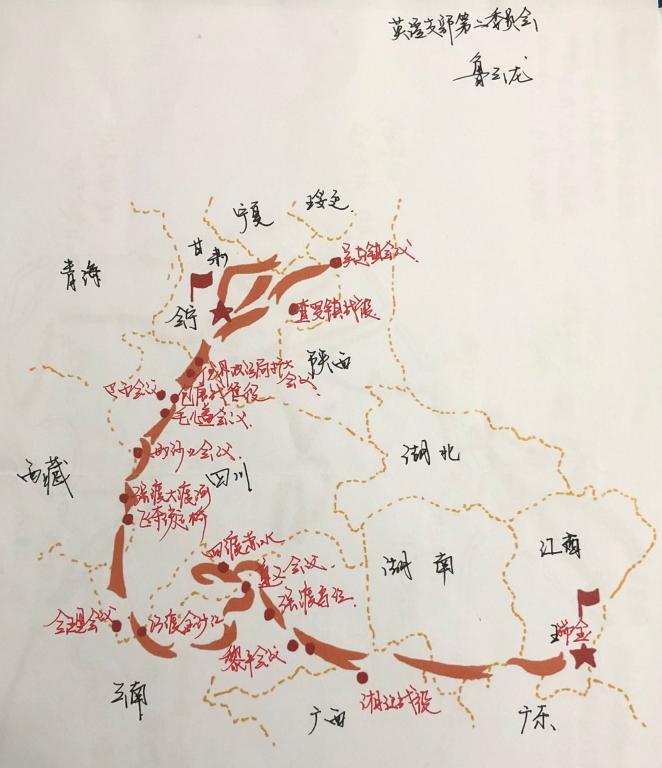 英
支部第二委员会
鲁云龙
宁夏
绥远
甘肃
吴起镇会议
青海
会宁
直罗镇战役
陕西
俄界政治局扩大
会议
巴西会议
包座战役
毛儿盖会议
西藏
两河口会议
四川
湖北
强渡大渡河
飞夺泸定桥
四渡赤水
遵义会议
湖南
江西
强渡乌江
瑞金
会理会议
巧渡金沙江
黎平会议
云南
广西
湘江战役
广东